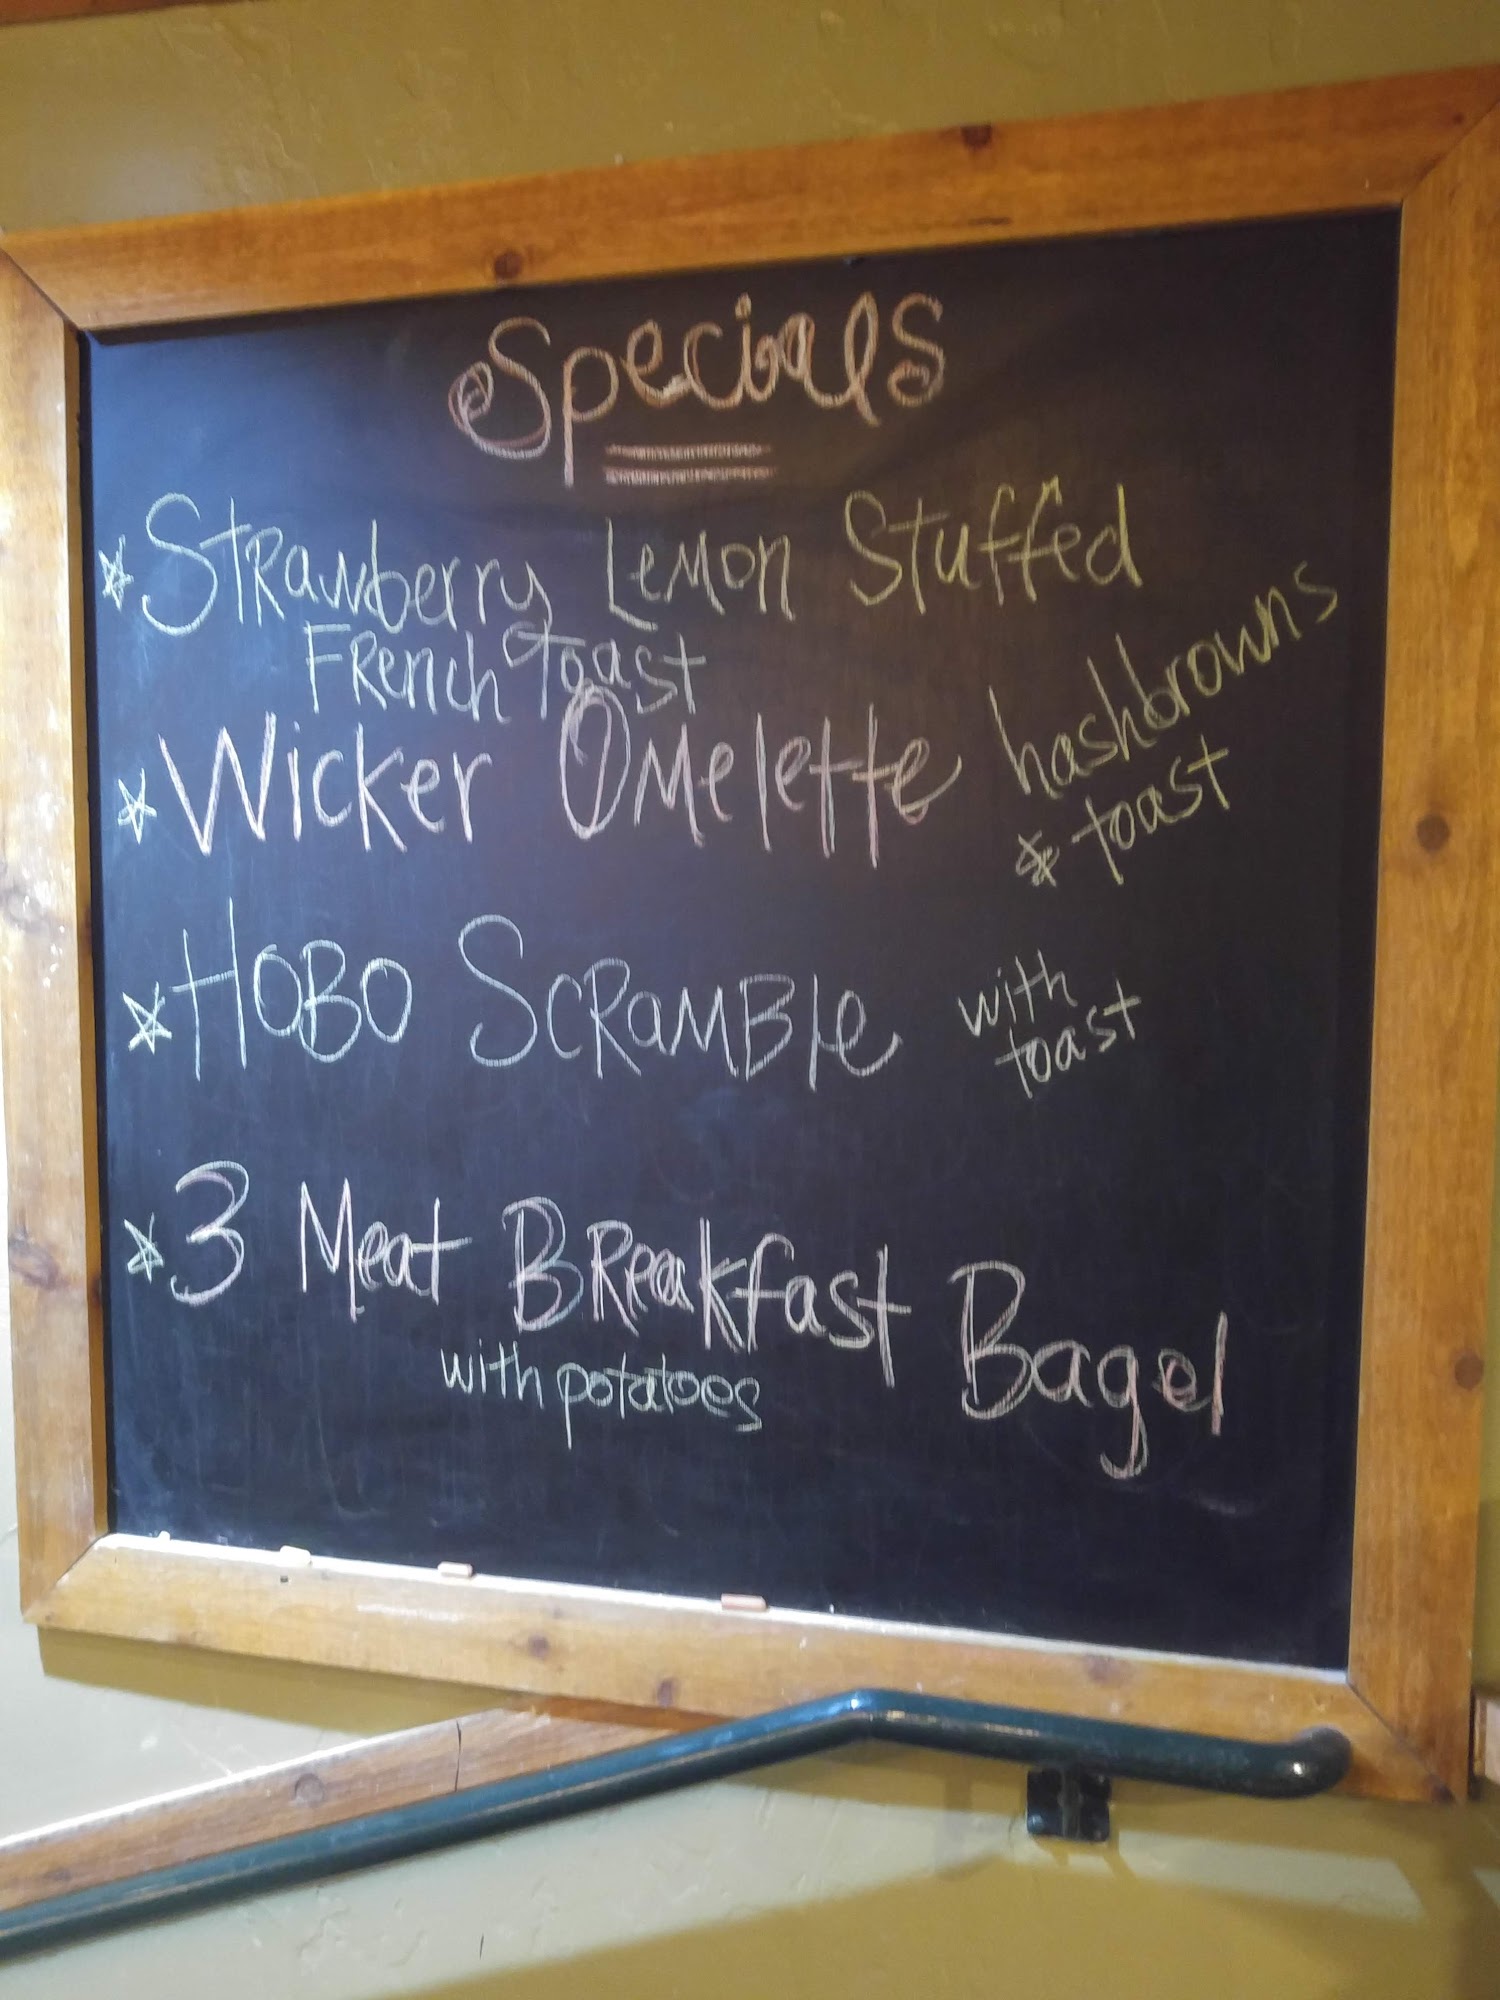 Specials
☆ Strawberry Lemon Stuffed
French Toast
☆ Wicker Omelette
hashbrowns
☆ toast
☆ Hobo Scramble
with
toast
☆ 3 Meat Breakfast Bagel
with potatoes